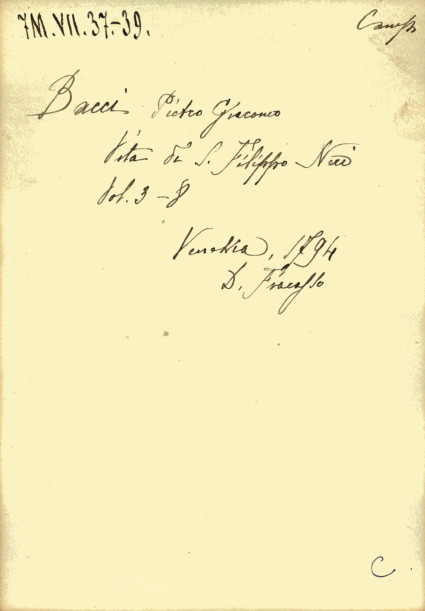 7M.VII.37-39.
Bacci Pietro Giacomo
Vita di S. Filippo Neri
Vol. 3 - 8
Venezia, 1794
D. Fracasso
C